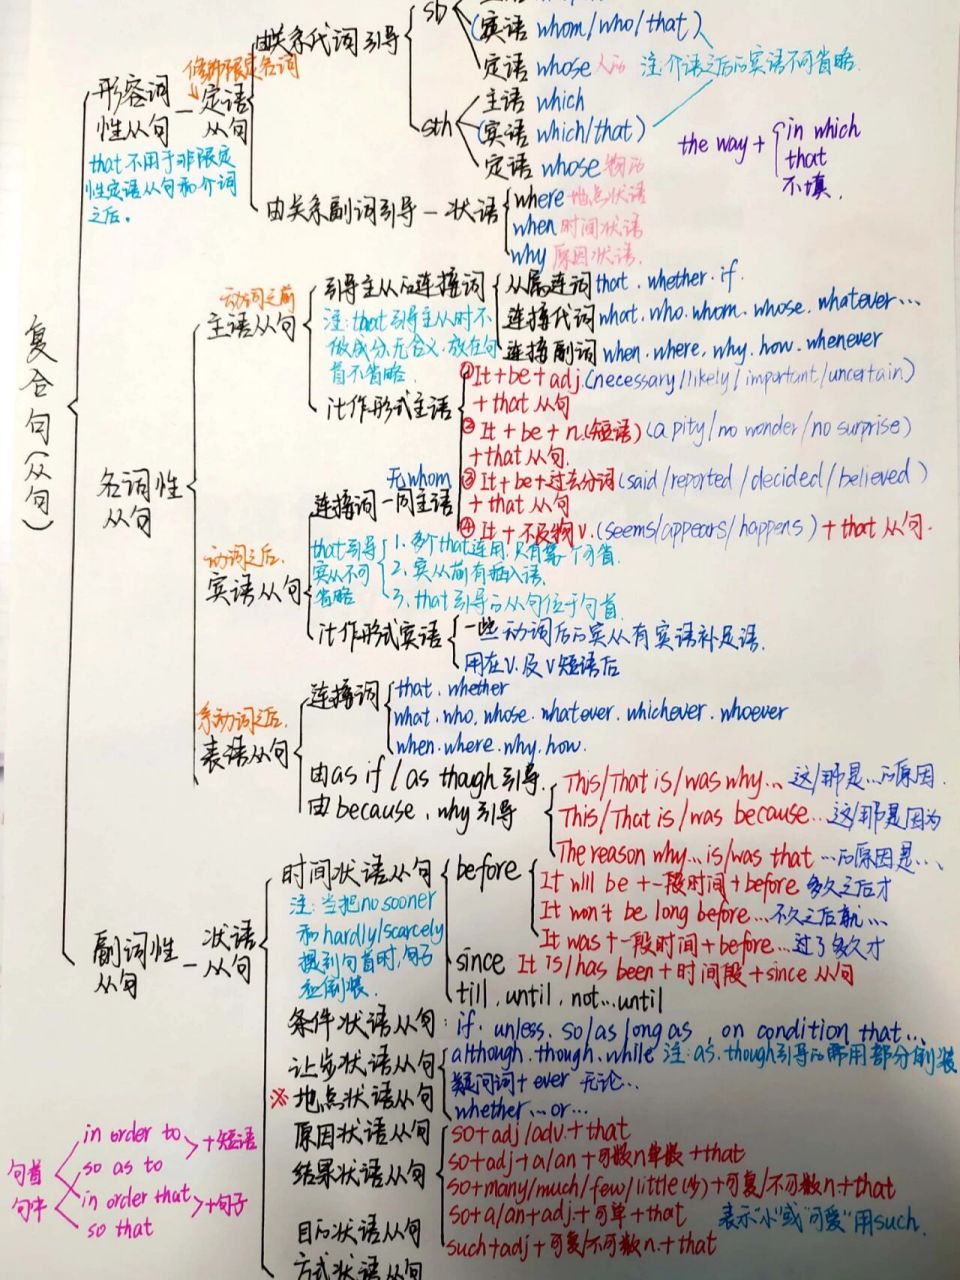 由关系代词引导
sb
(宾语 whom/who/that)
定语 whose 人的
注:介语之后的宾语不可省略.
修饰限定名词
形容词
性从句
定语
从句
that不用于非限定
性定语从句和介词
之后。
sth
主语 which
(宾语 which/that)
定语 whose 物的
the way +
in which
that
不填.
由关系副词引导 — 状语
where 地点状语
when 时间状语
why 原因状语.
复合句(从句)
名词性
从句
动词之前
主语从句
引导主从的连接词
从属连词 that.whether.if.
连接代词 what.who.whom.whose.whatever...
连接副词 when.where.why.how.whenever
注:that引导主从时不
做成分.无含义.放在句
首不省略.
it作形式主语
①It+be+adj.(necessary/likely/important/uncertain)
+that从句
②It+be+n.(短语)(a pity/no wonder/no surprise)
+that从句.
③It+be+过去分词(said/reported/decided/believed)
+that从句
④It+不及物v.(seems/appears/happens)+that从句.
动词之后.
宾语从句
无whom
连接词 — 同主语
that引导
宾从不可
省略
1.多个that连用.只有第一个可省.
2.宾从前有插入语.
3.that引导的从句位于句首
it作形式宾语
一些动词后的宾从有宾语补足语.
用在v.及v短语后
系动词之后.
表语从句
连接词
that.whether
what.who.whose.whatever.whichever.whoever
when.where.why.how.
由as if/as though引导.
由because.why引导
This/That is/was why... 这/那是...的原因.
This/That is/was because... 这/那是因为
The reason why...is/was that ...的原因是...
副词性
从句
状语
从句
时间状语从句
注:当把no sooner
和hardly/scarcely
提到句首时,句子
应倒装.
before
It will be+一段时间+before 多久之后才
It won't be long before...不久之后就...
It was+一段时间+before...过了多久才
since It is/has been+时间段+since从句
till.until.not...until
条件状语从句:if.unless.so/as/long as.on condition that...
让步状语从句
although.though.while 注:as.though引导的需用部分倒装
疑问词+ever 无论...
whether...or...
※地点状语从句
原因状语从句
结果状语从句
so+adj/adv.+that
so+adj+a/an+可数n单数+that
so+many/much/few/little(少)+可复/不可数n+that
so+a/an+adj.+可单+that
such+adj+可复/不可数n.+that
表示"小"或"可爱"用such.
目的状语从句
方式状语从句
句首
句中
in order to
so as to
+短语
in order that
so that
+句子